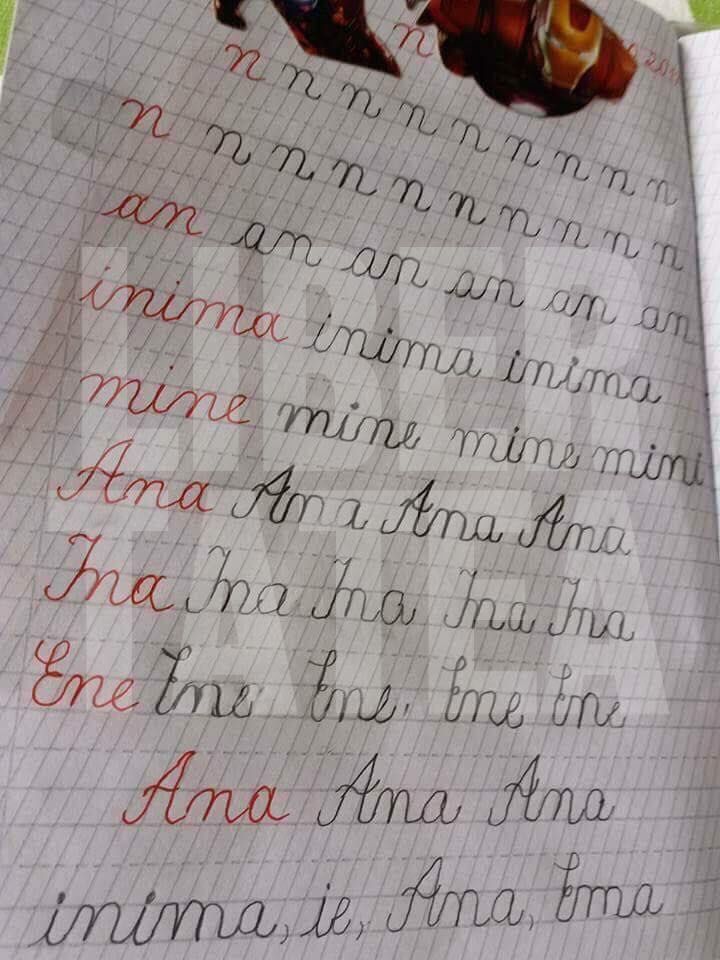 n
n n n n n n n n n
n n n n n n n n n
an an an an an an
inima inima inima
mine mine mine mini
Ana Ana Ana Ana
Ina Ina Ina Ina Ina
Ene Ene Ene. Ene Ene
Ana Ana Ana
inima, ie, Ana, Ema
LIBER
TATEA